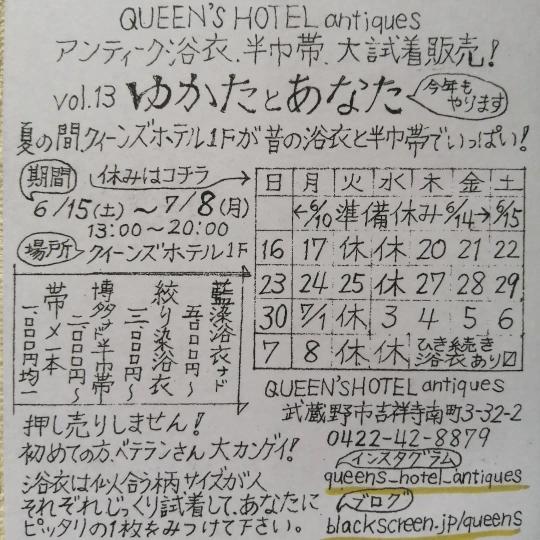 QUEEN'S HOTEL antiques
アンティーク浴衣、半巾帯、大試着販売!
vol.13 ゆかたとあなた 今年もやります
夏の間クィーンズホテル1Fが昔の浴衣と半巾帯でいっぱい!
期間 休みはコチラ
6/15(土)〜7/8(月)
13:00〜20:00
場所 クィーンズホテル1F
日 月 火 水 木 金 土
←6/10 準備休み 6/14→ 6/15
16 17 休 休 20 21 22
23 24 25 休 27 28 29
30 7/1 休 3 4 5 6
7 8 休 休 ひき続き浴衣あり〼
藍染浴衣ナド 五〇〇〇円〜
絞り染浴衣 三、〇〇〇円〜
博多ナド半巾帯 二、〇〇〇円〜
帯〆一本 一、〇〇〇円均一
QUEEN'S HOTEL antiques
武蔵野市吉祥寺南町3-32-2
0422-42-8879
インスタグラム
queens_hotel_antiques
ブログ
blackscreen.jp/queens
押し売りしません!
初めての方、ベテランさん大カンゲイ!
浴衣は似合う柄サイズが人
それぞれじっくり試着して、あなたに
ピッタリの1枚をみつけて下さい。